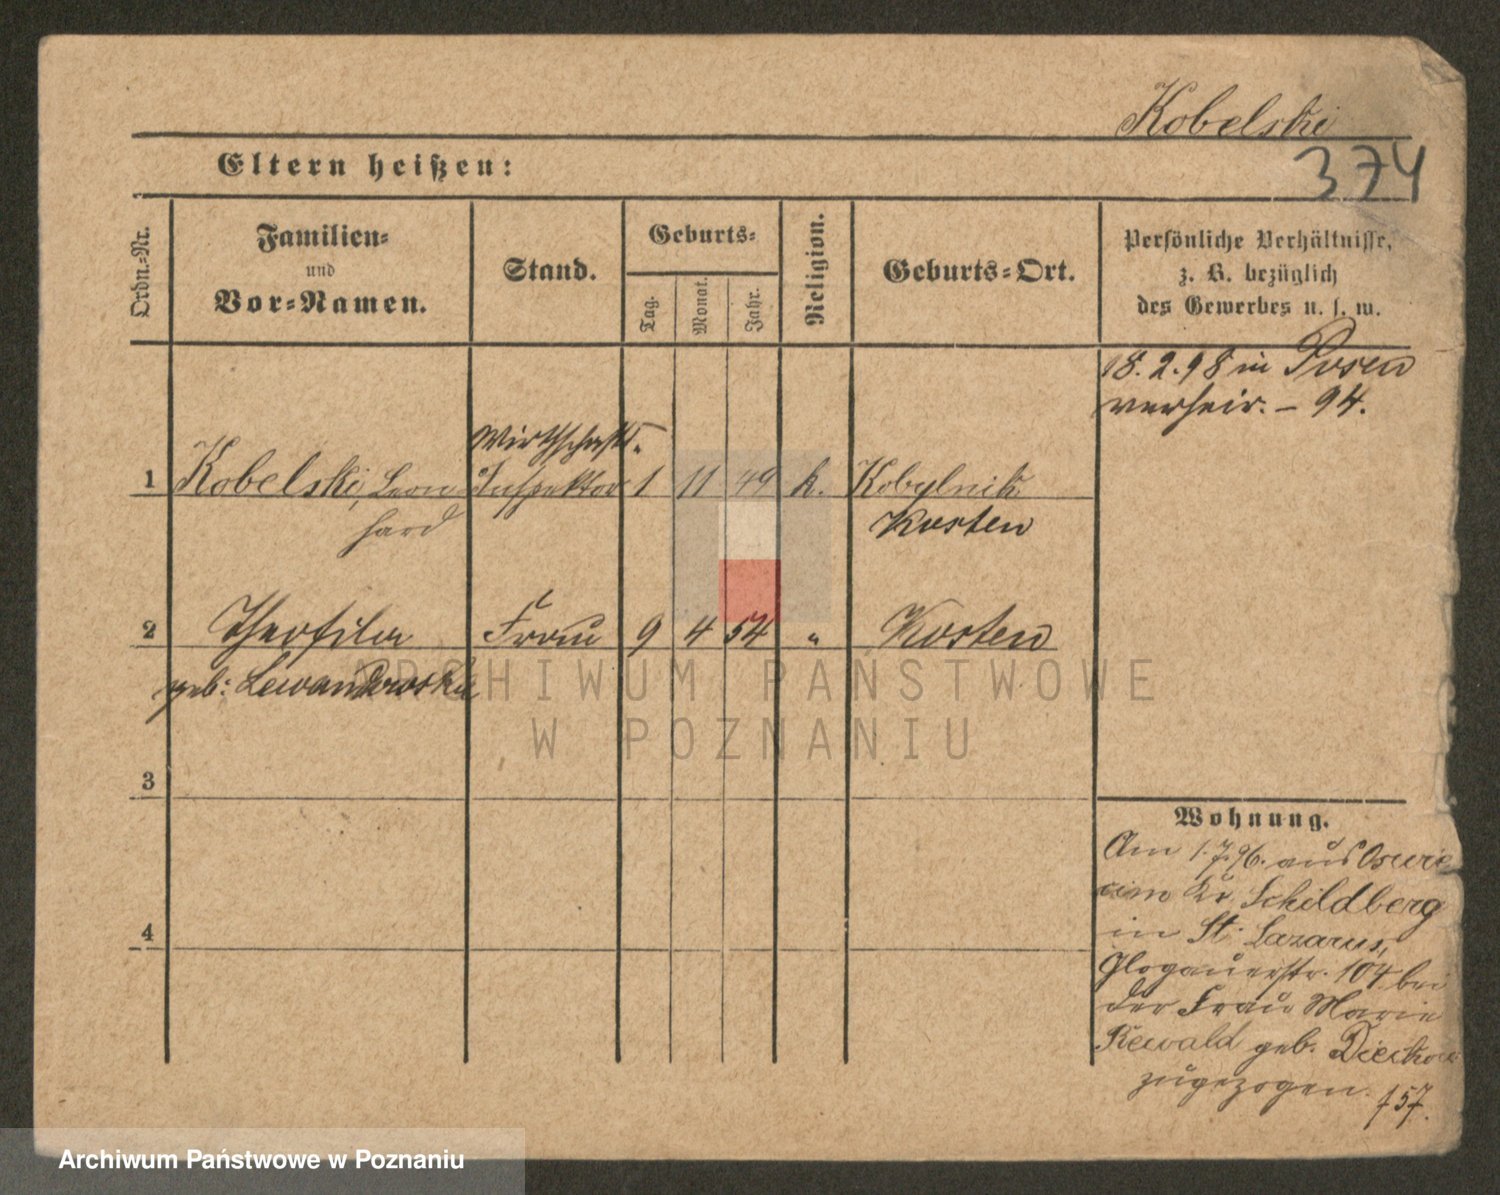 Kobelski
374
Eltern heißen:
Ordn.-Nr.
Familien-
und
Vor-Namen.
Stand.
Geburts-
Tag.
Monat.
Jahr.
Religion.
Geburts-Ort.
Persönliche Verhältnisse,
z. B. bezüglich
des Gewerbes u. s. w.
18.2.98 in Posen
verheir. – 94.
Wirthschafts-
1 Kobelski, Leon Inspektor 1 11 49 k. Kobylnik
hard Kosten
2 Theofila Frau 9 4 54 " Kosten
geb: Lewandowska
3
4
Wohnung.
Am 1.7.96. aus
Kr. Schildberg
in St. Lazarus,
Glogauerstr. 104 bei
der Frau Marie
Rewald geb.
zugezogen. f 57.
ARCHIWUM PAŃSTWOWE
W POZNANIU
Archiwum Państwowe w Poznaniu